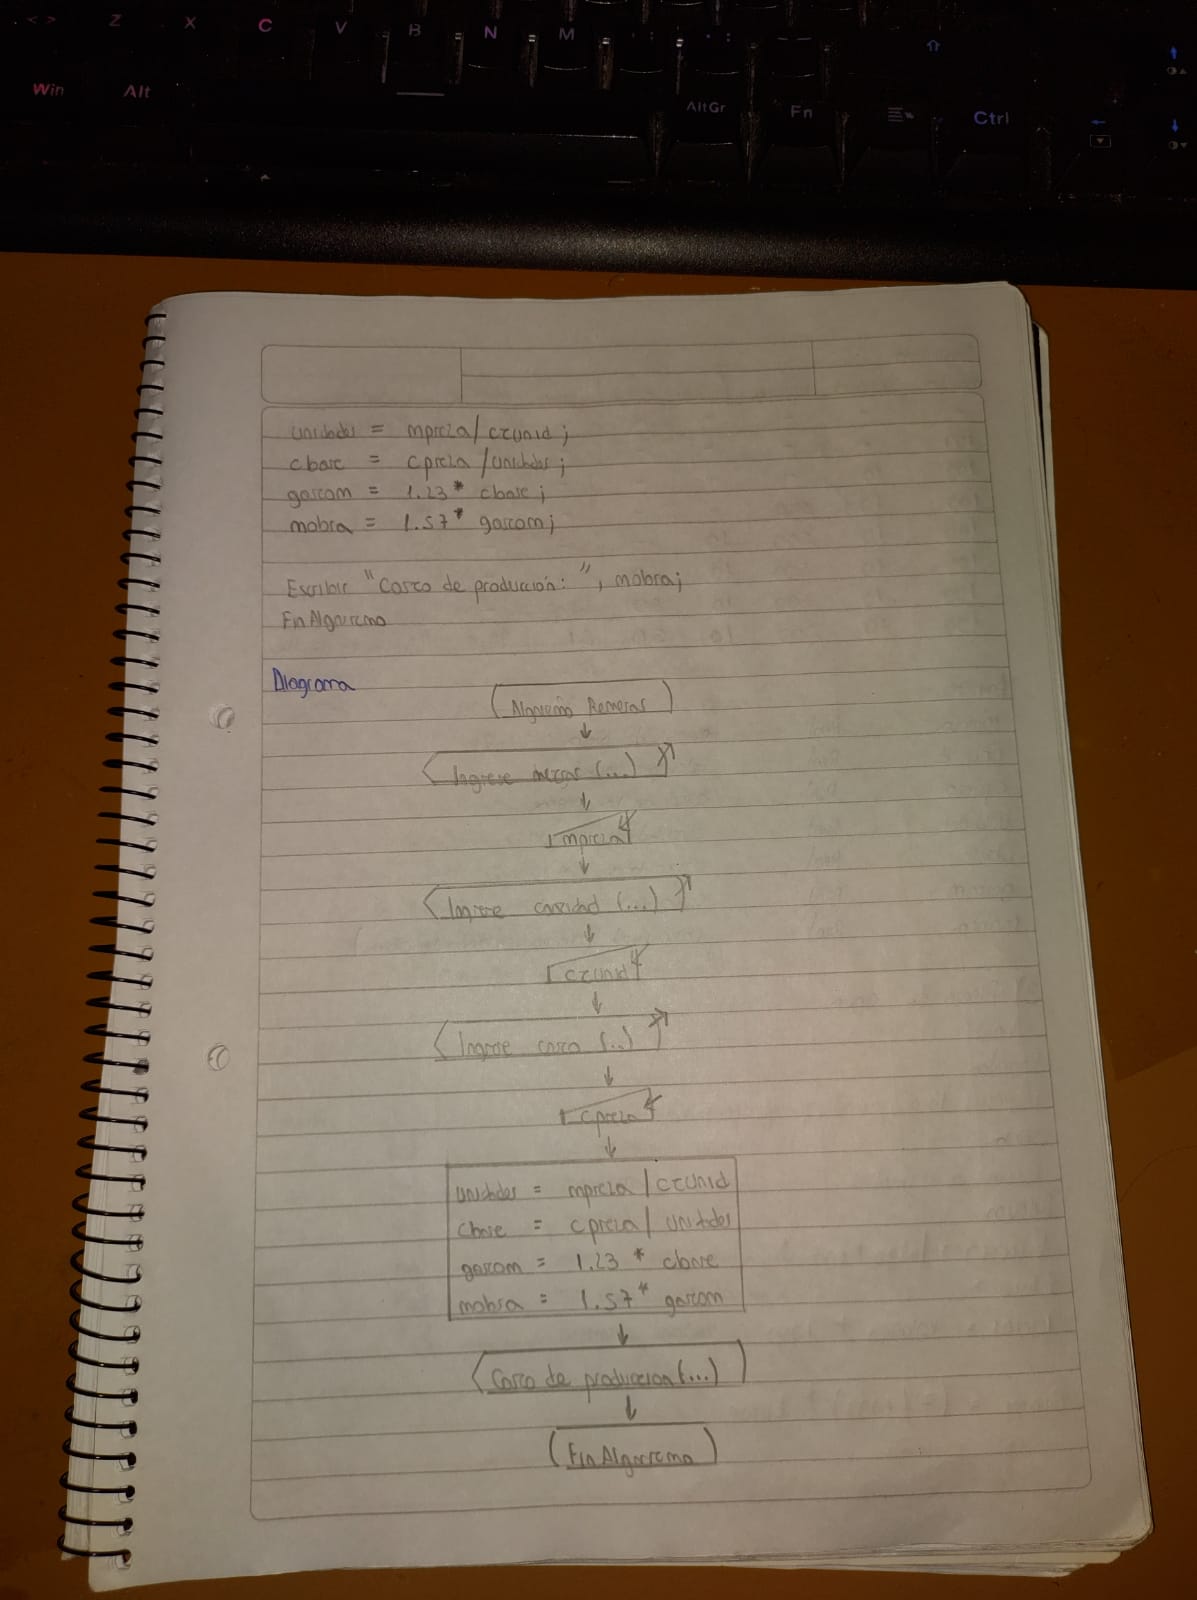 < > Z X C V B N M , ; . :
Win Alt AltGr Fn Ctrl
unidades = mpieza/ctunid;
cbase = cpieza/unidades;
gascom = 1.23 * cbase;
mobra = 1.57 * gascom;
Escribir "Costo de producción: ", mobra;
FinAlgoritmo
Diagrama
Algoritmo Remeras
Ingrese metros (...)
mpieza
Ingrese cantidad (...)
ctunid
Ingrese costo (...)
cpieza
unidades = mpieza/ctunid
cbase = cpieza/unidades
gascom = 1.23 * cbase
mobra = 1.57 * gascom
Costo de produccion (...)
FinAlgoritmo